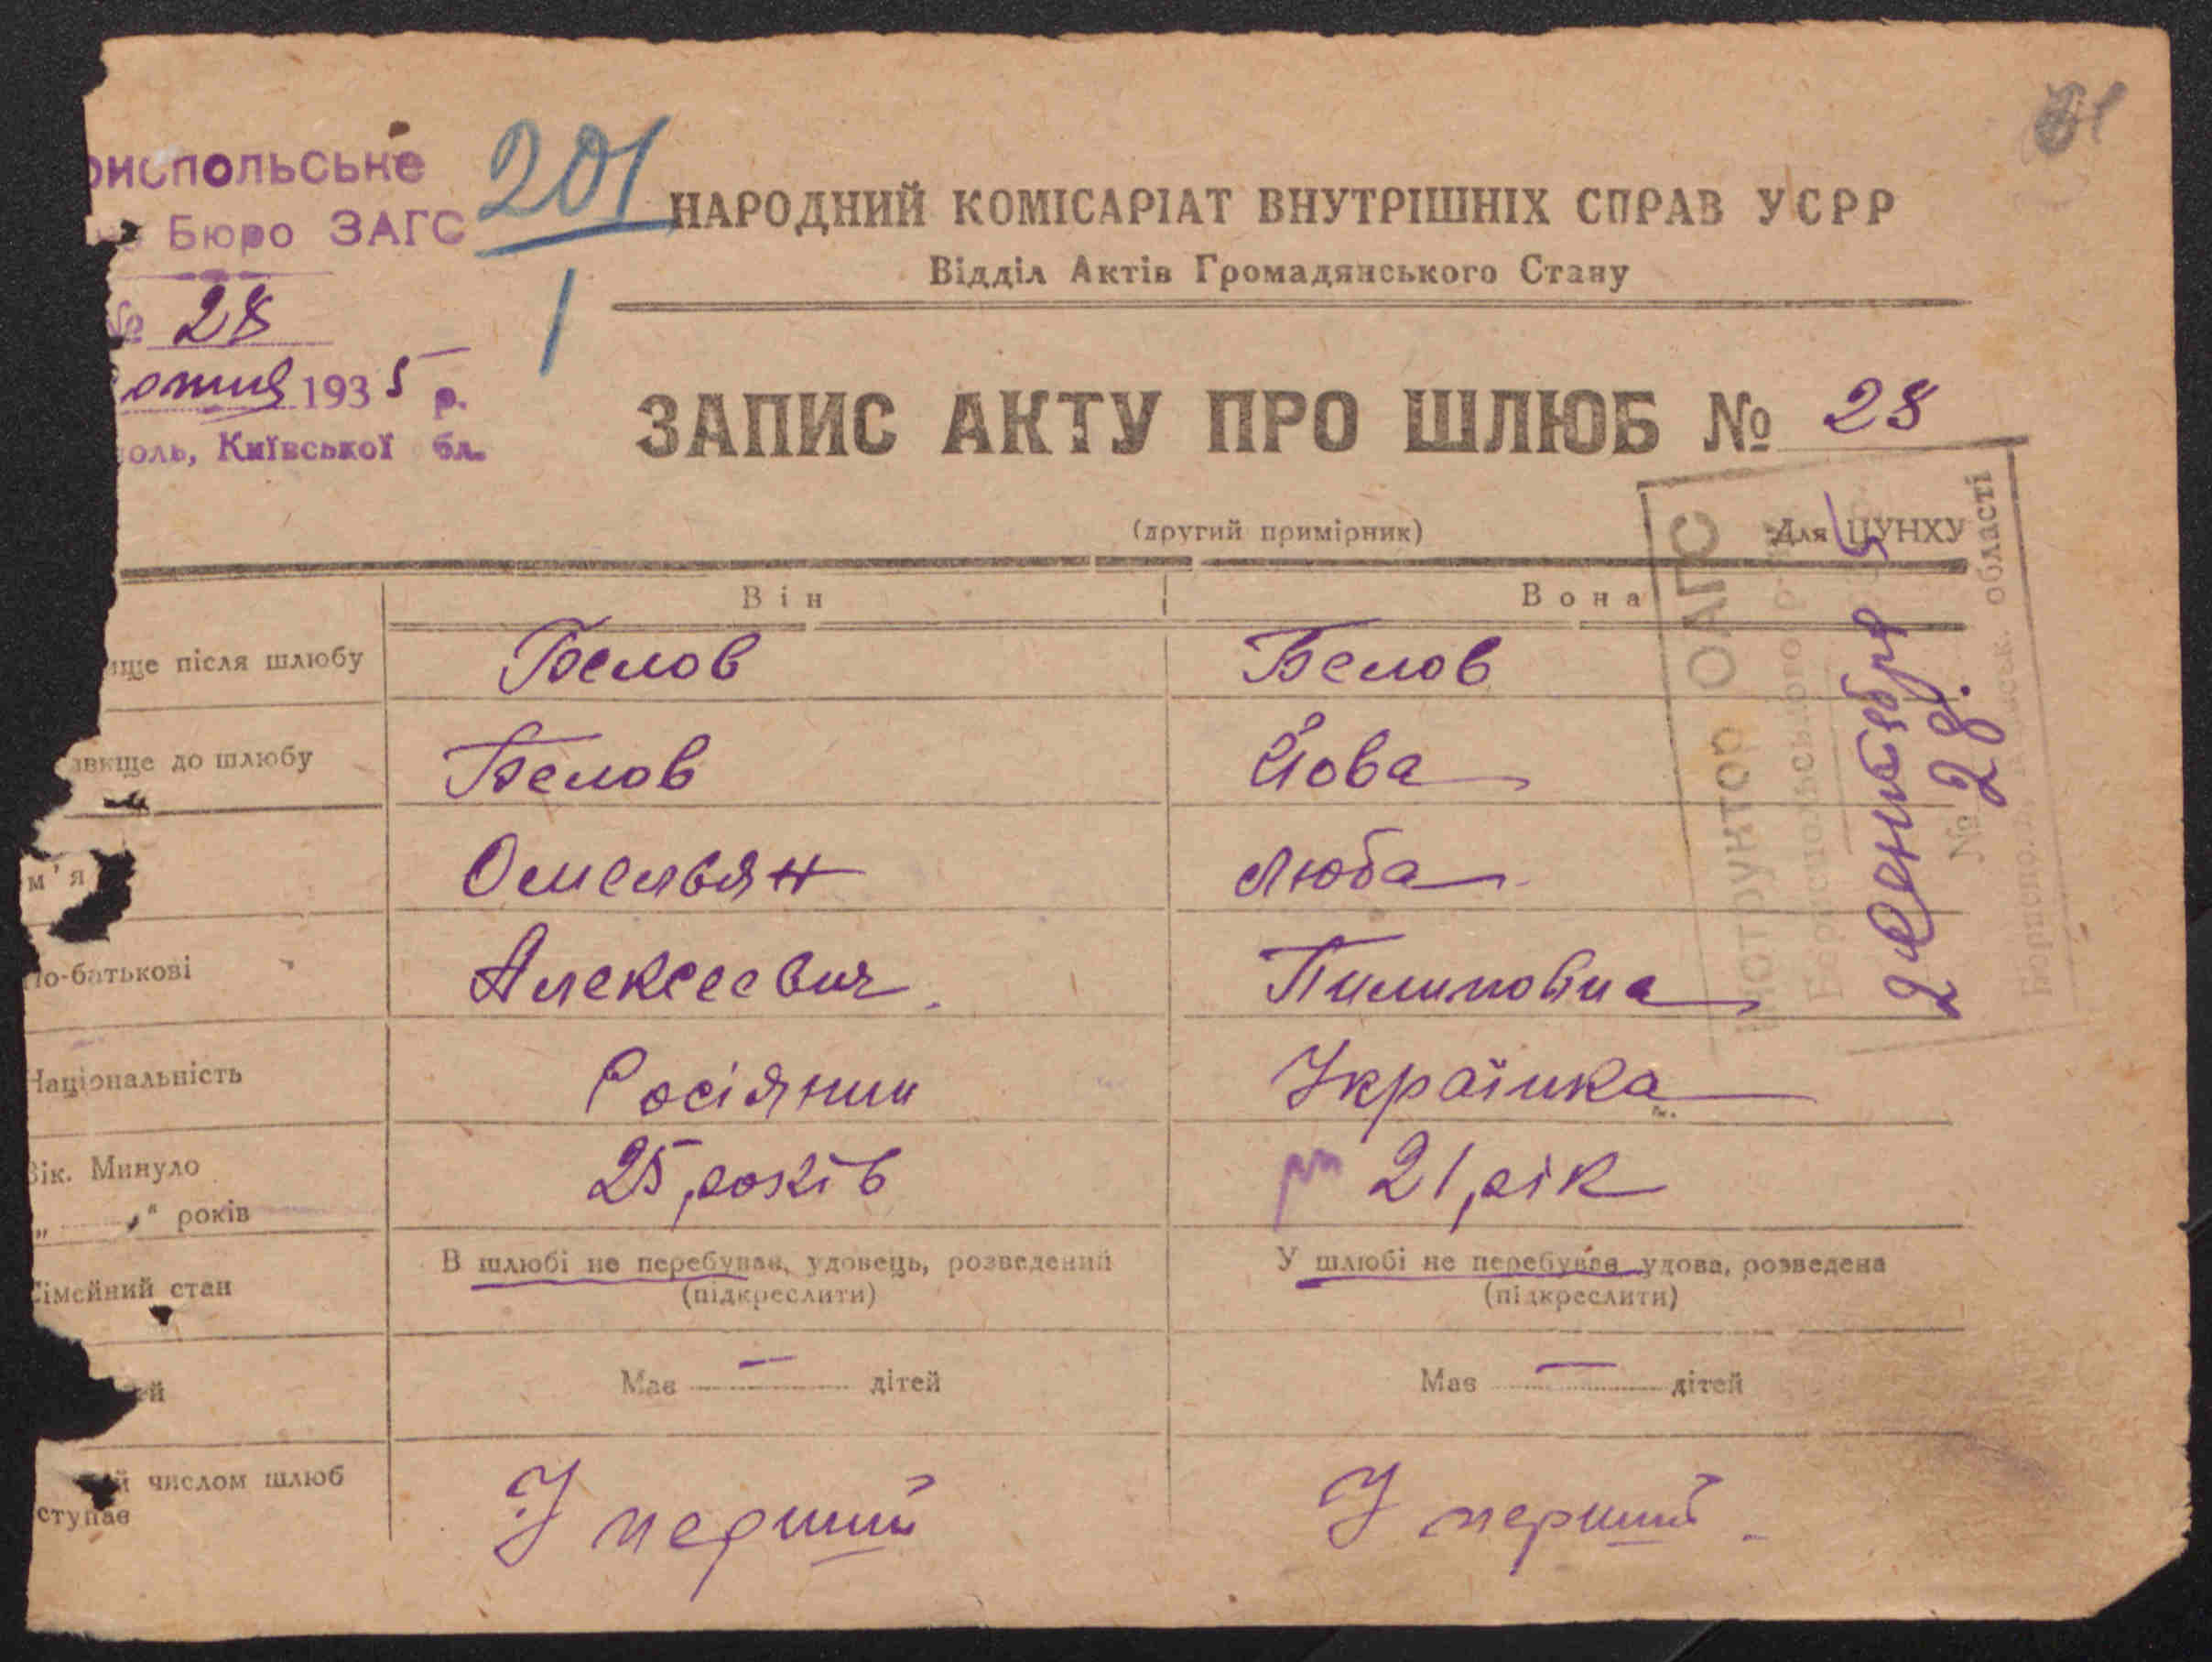 201
1
81
риспольське
Бюро ЗАГС
№ 28
отня 1935 р.
оль, Київської бл.
НАРОДНИЙ КОМІСАРІАТ ВНУТРІШНІХ СПРАВ УСРР
Відділ Актів Громадянського Стану
ЗАПИС АКТУ ПРО ШЛЮБ № 28
(другий примірник) Для ЦУНХУ
Він Вона
ище після шлюбу Белов Белов
звище до шлюбу Белов Йова
м'я Омельян Люба
По-батькові Алексеевич Пилиповна
Національність Росіянин Українка
Вік. Минуло
„ “ років 25 років 21 рік
Сімейний стан В шлюбі не перебував, удовець, розведений У шлюбі не перебував удова, розведена
(підкреслити) (підкреслити)
ей Має — дітей Має — дітей
й числом шлюб
ступає У перший У перший
ІНСТРУКТОР ОАГС
Бориспольського р-ну
№ 28.
області